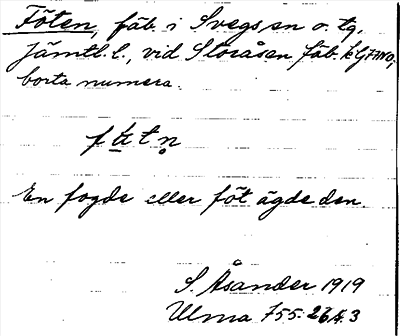 Föten, fäb. i Svegs sn o. tg,
Jämtl. l., vid Storåsen fäb.
borta numera.
f t n
En fogde eller föt ägde den.
S. Åsander 1919
Ulma 755:26 A. 3